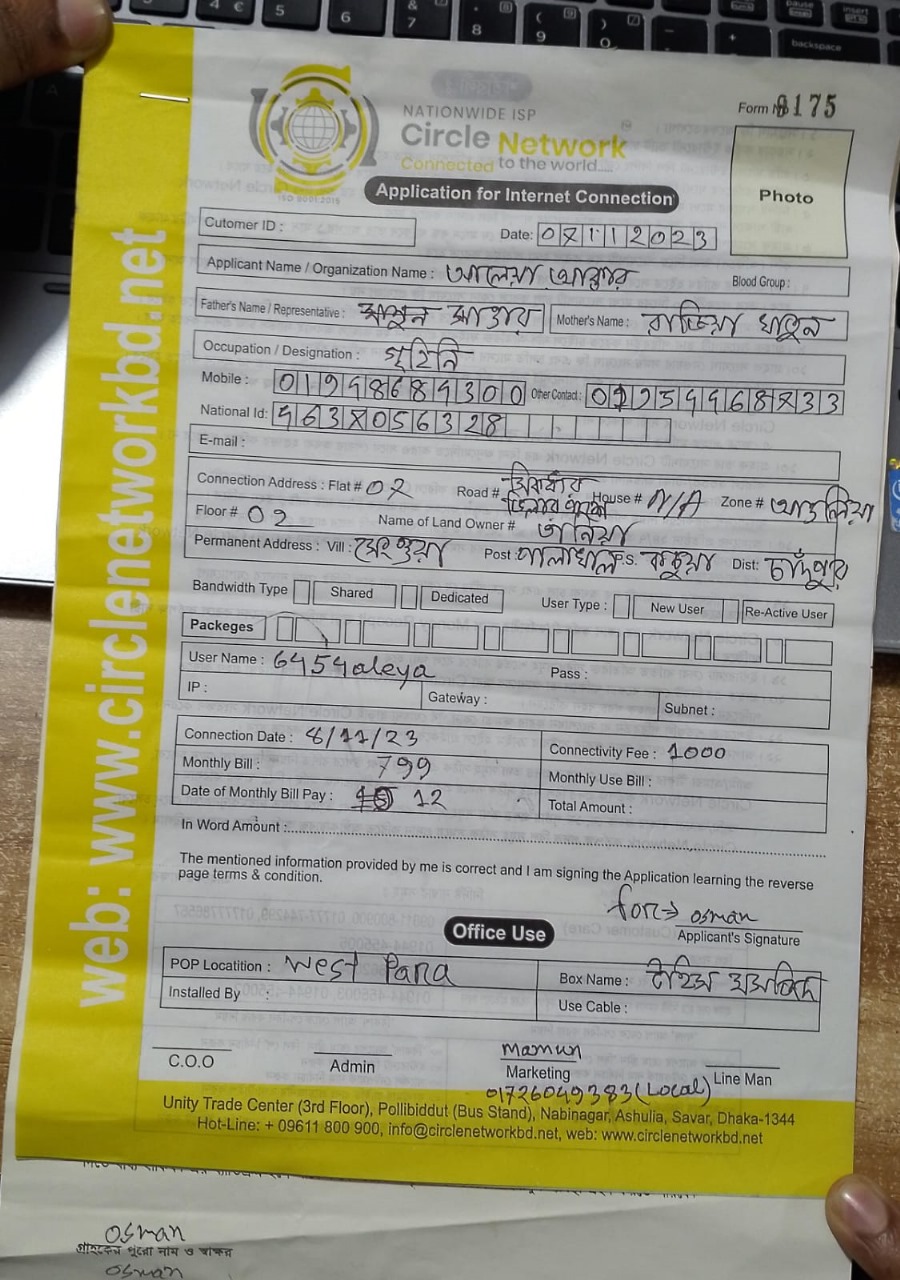 4 € 5 6 & 7 * 8 ( 9 ) 0 - + pause insert backspace
NATIONWIDE ISP
Circle Network
Connected to the world....
ISO 9001:2015
Form No 8175
Photo
Application for Internet Connection
Cutomer ID :
Date: 07112023
Applicant Name / Organization Name : আলেয়া আক্তার Blood Group :
Father's Name / Representative : সাত্তার Mother's Name : রাজিয়া খাতুন
Occupation / Designation : গৃহিনি
Mobile : Other Contact :
National Id:
E-mail :
Connection Address : Flat # 02 Road # House # N/A Zone # আশুলিয়া
Floor # 02 Name of Land Owner # তানিয়া
Permanent Address : Vill : Post : P.S. কচুয়া Dist: চাঁদপুর
Bandwidth Type Shared Dedicated User Type : New User Re-Active User
Packeges
User Name : 6454aleya Pass :
IP : Gateway : Subnet :
Connection Date : 8/11/23 Connectivity Fee : 1000
Monthly Bill : 799 Monthly Use Bill :
Date of Monthly Bill Pay : 12 Total Amount :
In Word Amount :
The mentioned information provided by me is correct and I am signing the Application learning the reverse
page terms & condition.
for→ osman
Applicant's Signature
Office Use
POP Locatition : West Para Box Name :
Installed By : Use Cable :
C.O.O Admin Mamun Marketing Line Man
01726049383 (Local)
Unity Trade Center (3rd Floor), Pollibiddut (Bus Stand), Nabinagar, Ashulia, Savar, Dhaka-1344
Hot-Line: + 09611 800 900, info@circlenetworkbd.net, web: www.circlenetworkbd.net
web: www.circlenetworkbd.net
osman
গ্রাহকের পুরো নাম ও স্বাক্ষর
osman